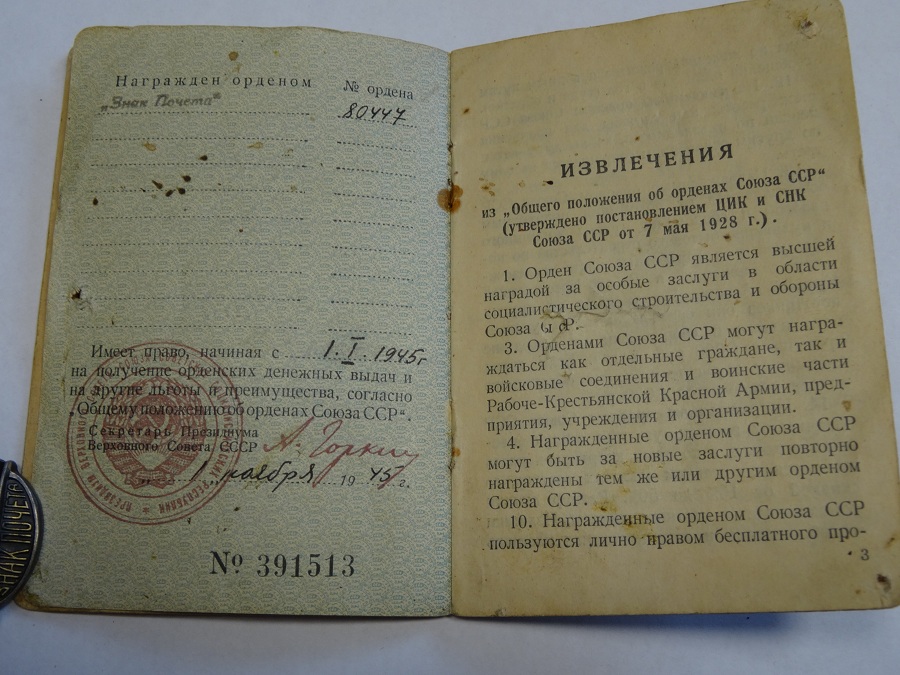 Награжден орденом № ордена
„Знак Почета" 80447
Имеет право, начиная с 1.I 1945г
на получение орденских денежных выдач и
на другие льготы и преимущества, согласно
„Общему положению об орденах Союза ССР".
Секретарь Президиума
Верховного Совета СССР А. Горкин
„ 1 " ноября 1945 г.
№ 391513
ЗНАК ПОЧЕТА
ИЗВЛЕЧЕНИЯ
из „Общего положения об орденах Союза ССР"
(утверждено постановлением ЦИК и СНК
Союза ССР от 7 мая 1928 г.).
1. Орден Союза ССР является высшей
наградой за особые заслуги в области
социалистического строительства и обороны
Союза ССР.
3. Орденами Союза ССР могут награ-
ждаться как отдельные граждане, так и
войсковые соединения и воинские части
Рабоче-Крестьянской Красной Армии, пред-
приятия, учреждения и организации.
4. Награжденные орденом Союза ССР
могут быть за новые заслуги повторно
награждены тем же или другим орденом
Союза ССР.
10. Награжденные орденом Союза ССР
пользуются лично правом бесплатного про-
3